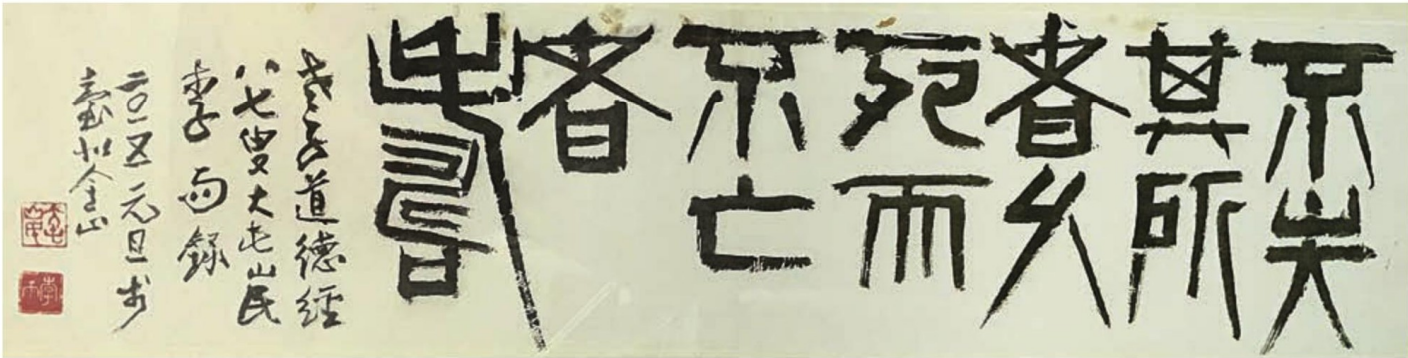 不失
其所
者久
死而
不亡
者
壽
老子道德經
八七叟大屯山民
李再錄
二〇一五元旦於
臺北金山